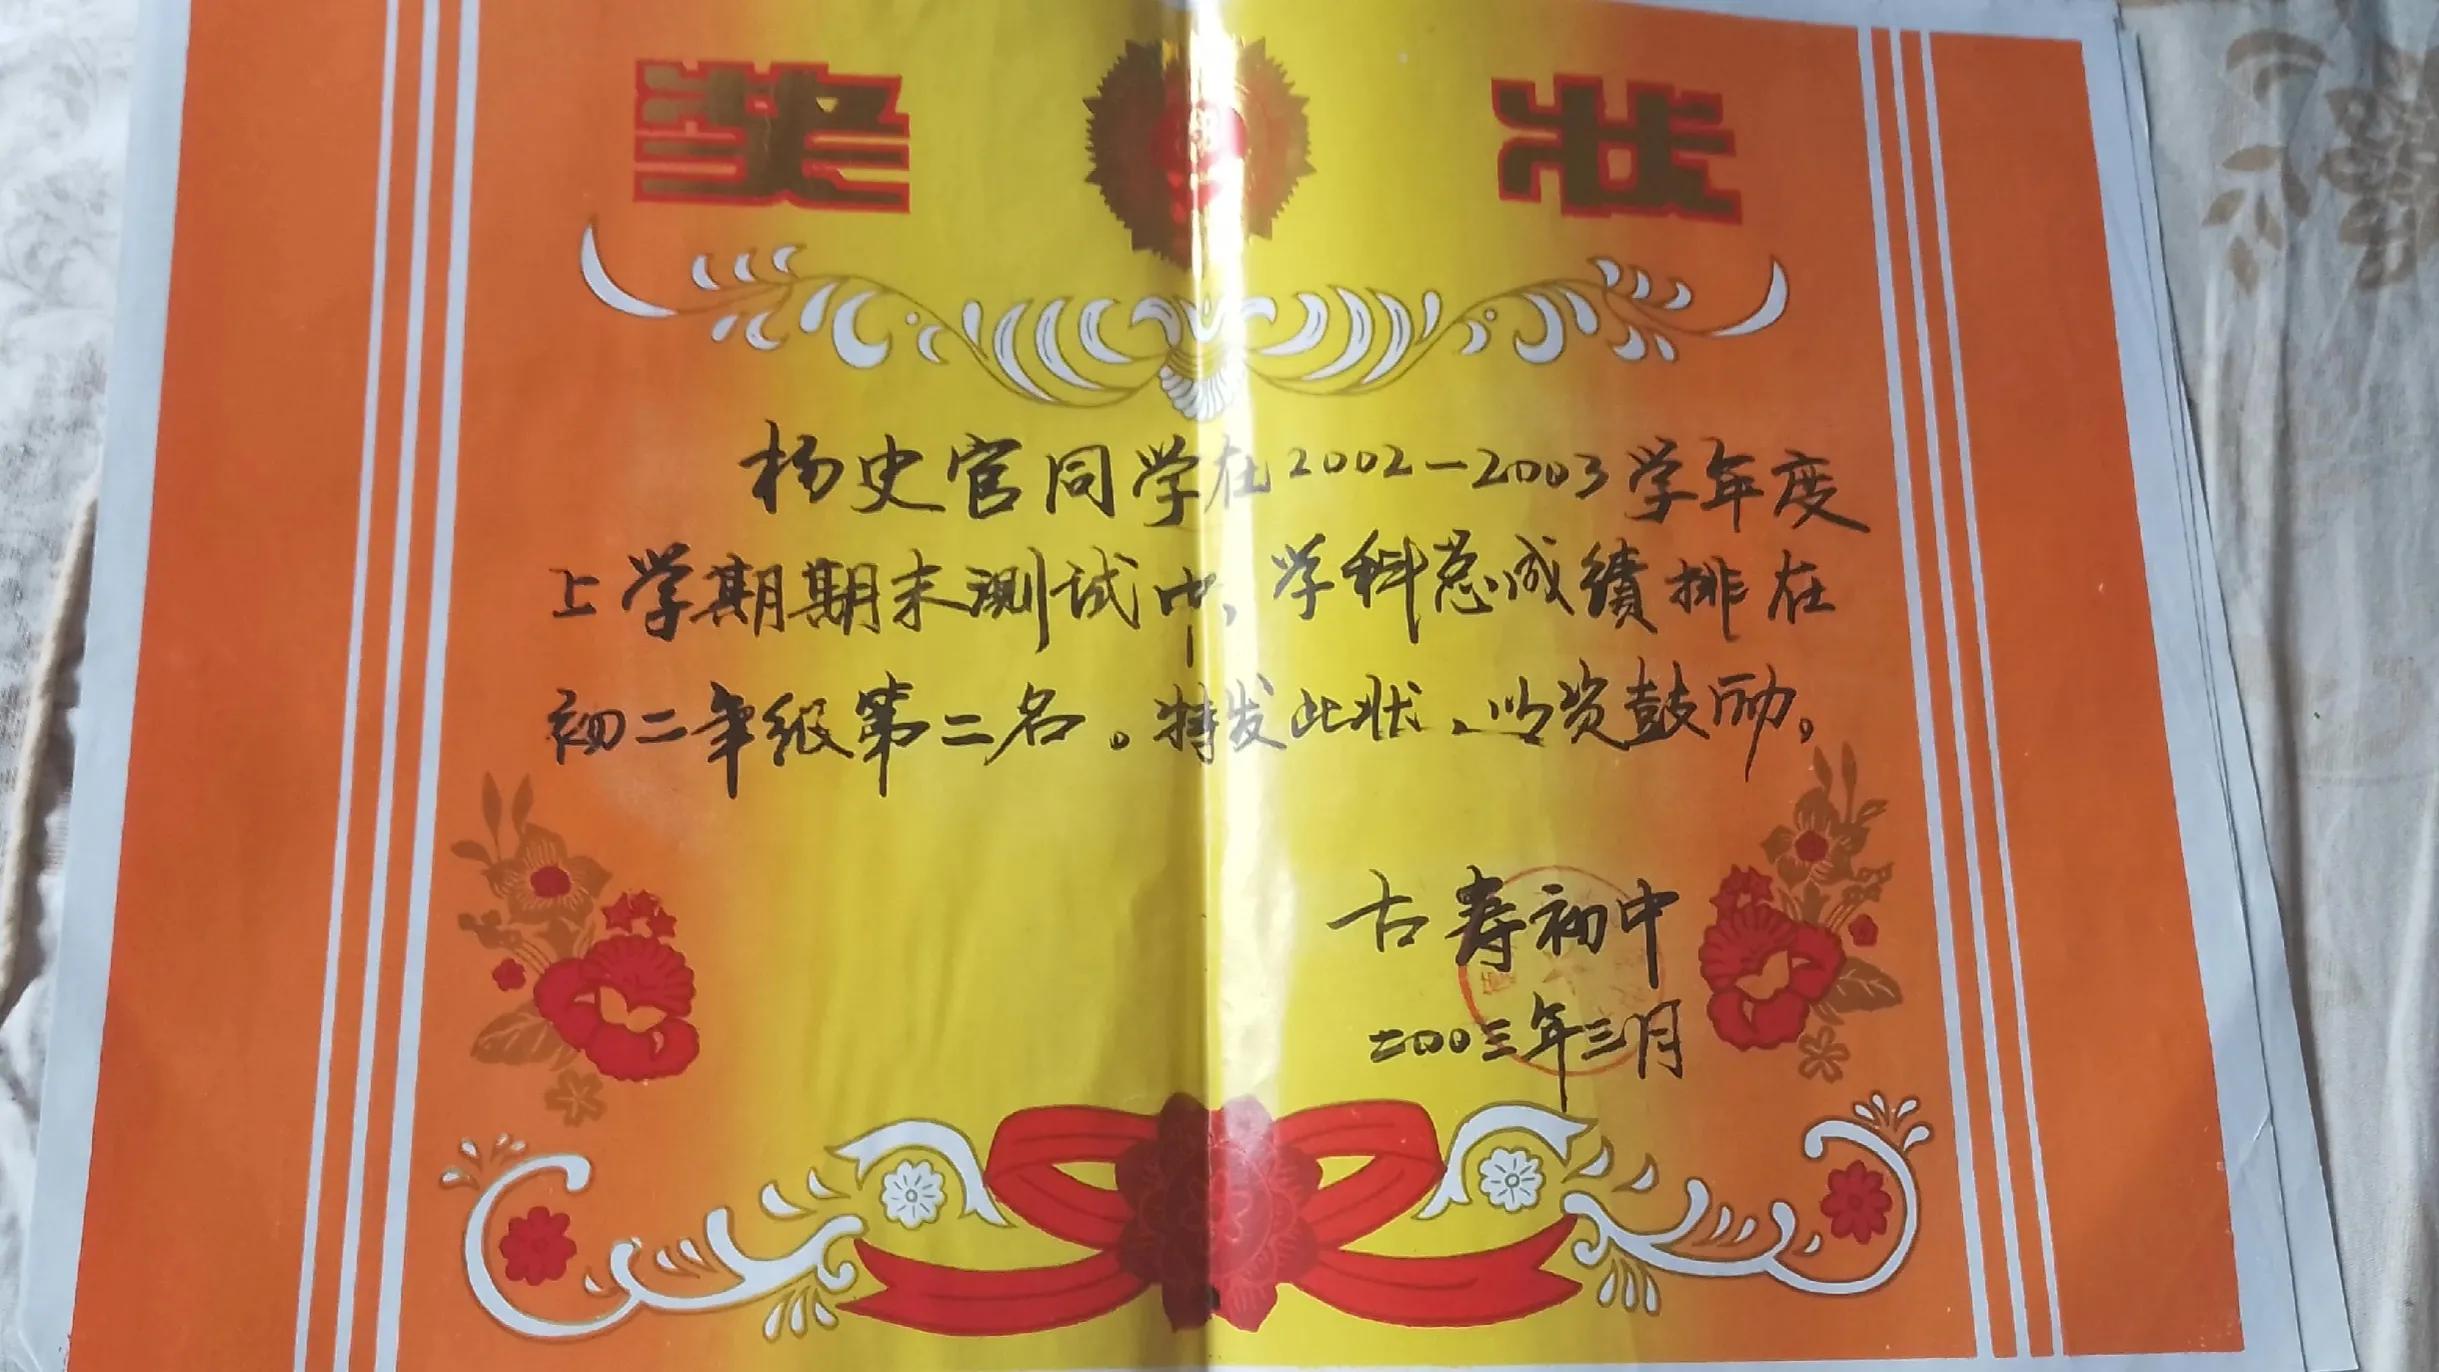 奖 状
杨史官同学在2002-2003学年度
上学期期末测试中,学科总成绩排在
初二年级第二名。特发此状、以资鼓励。
古寿初中
二00三年三月